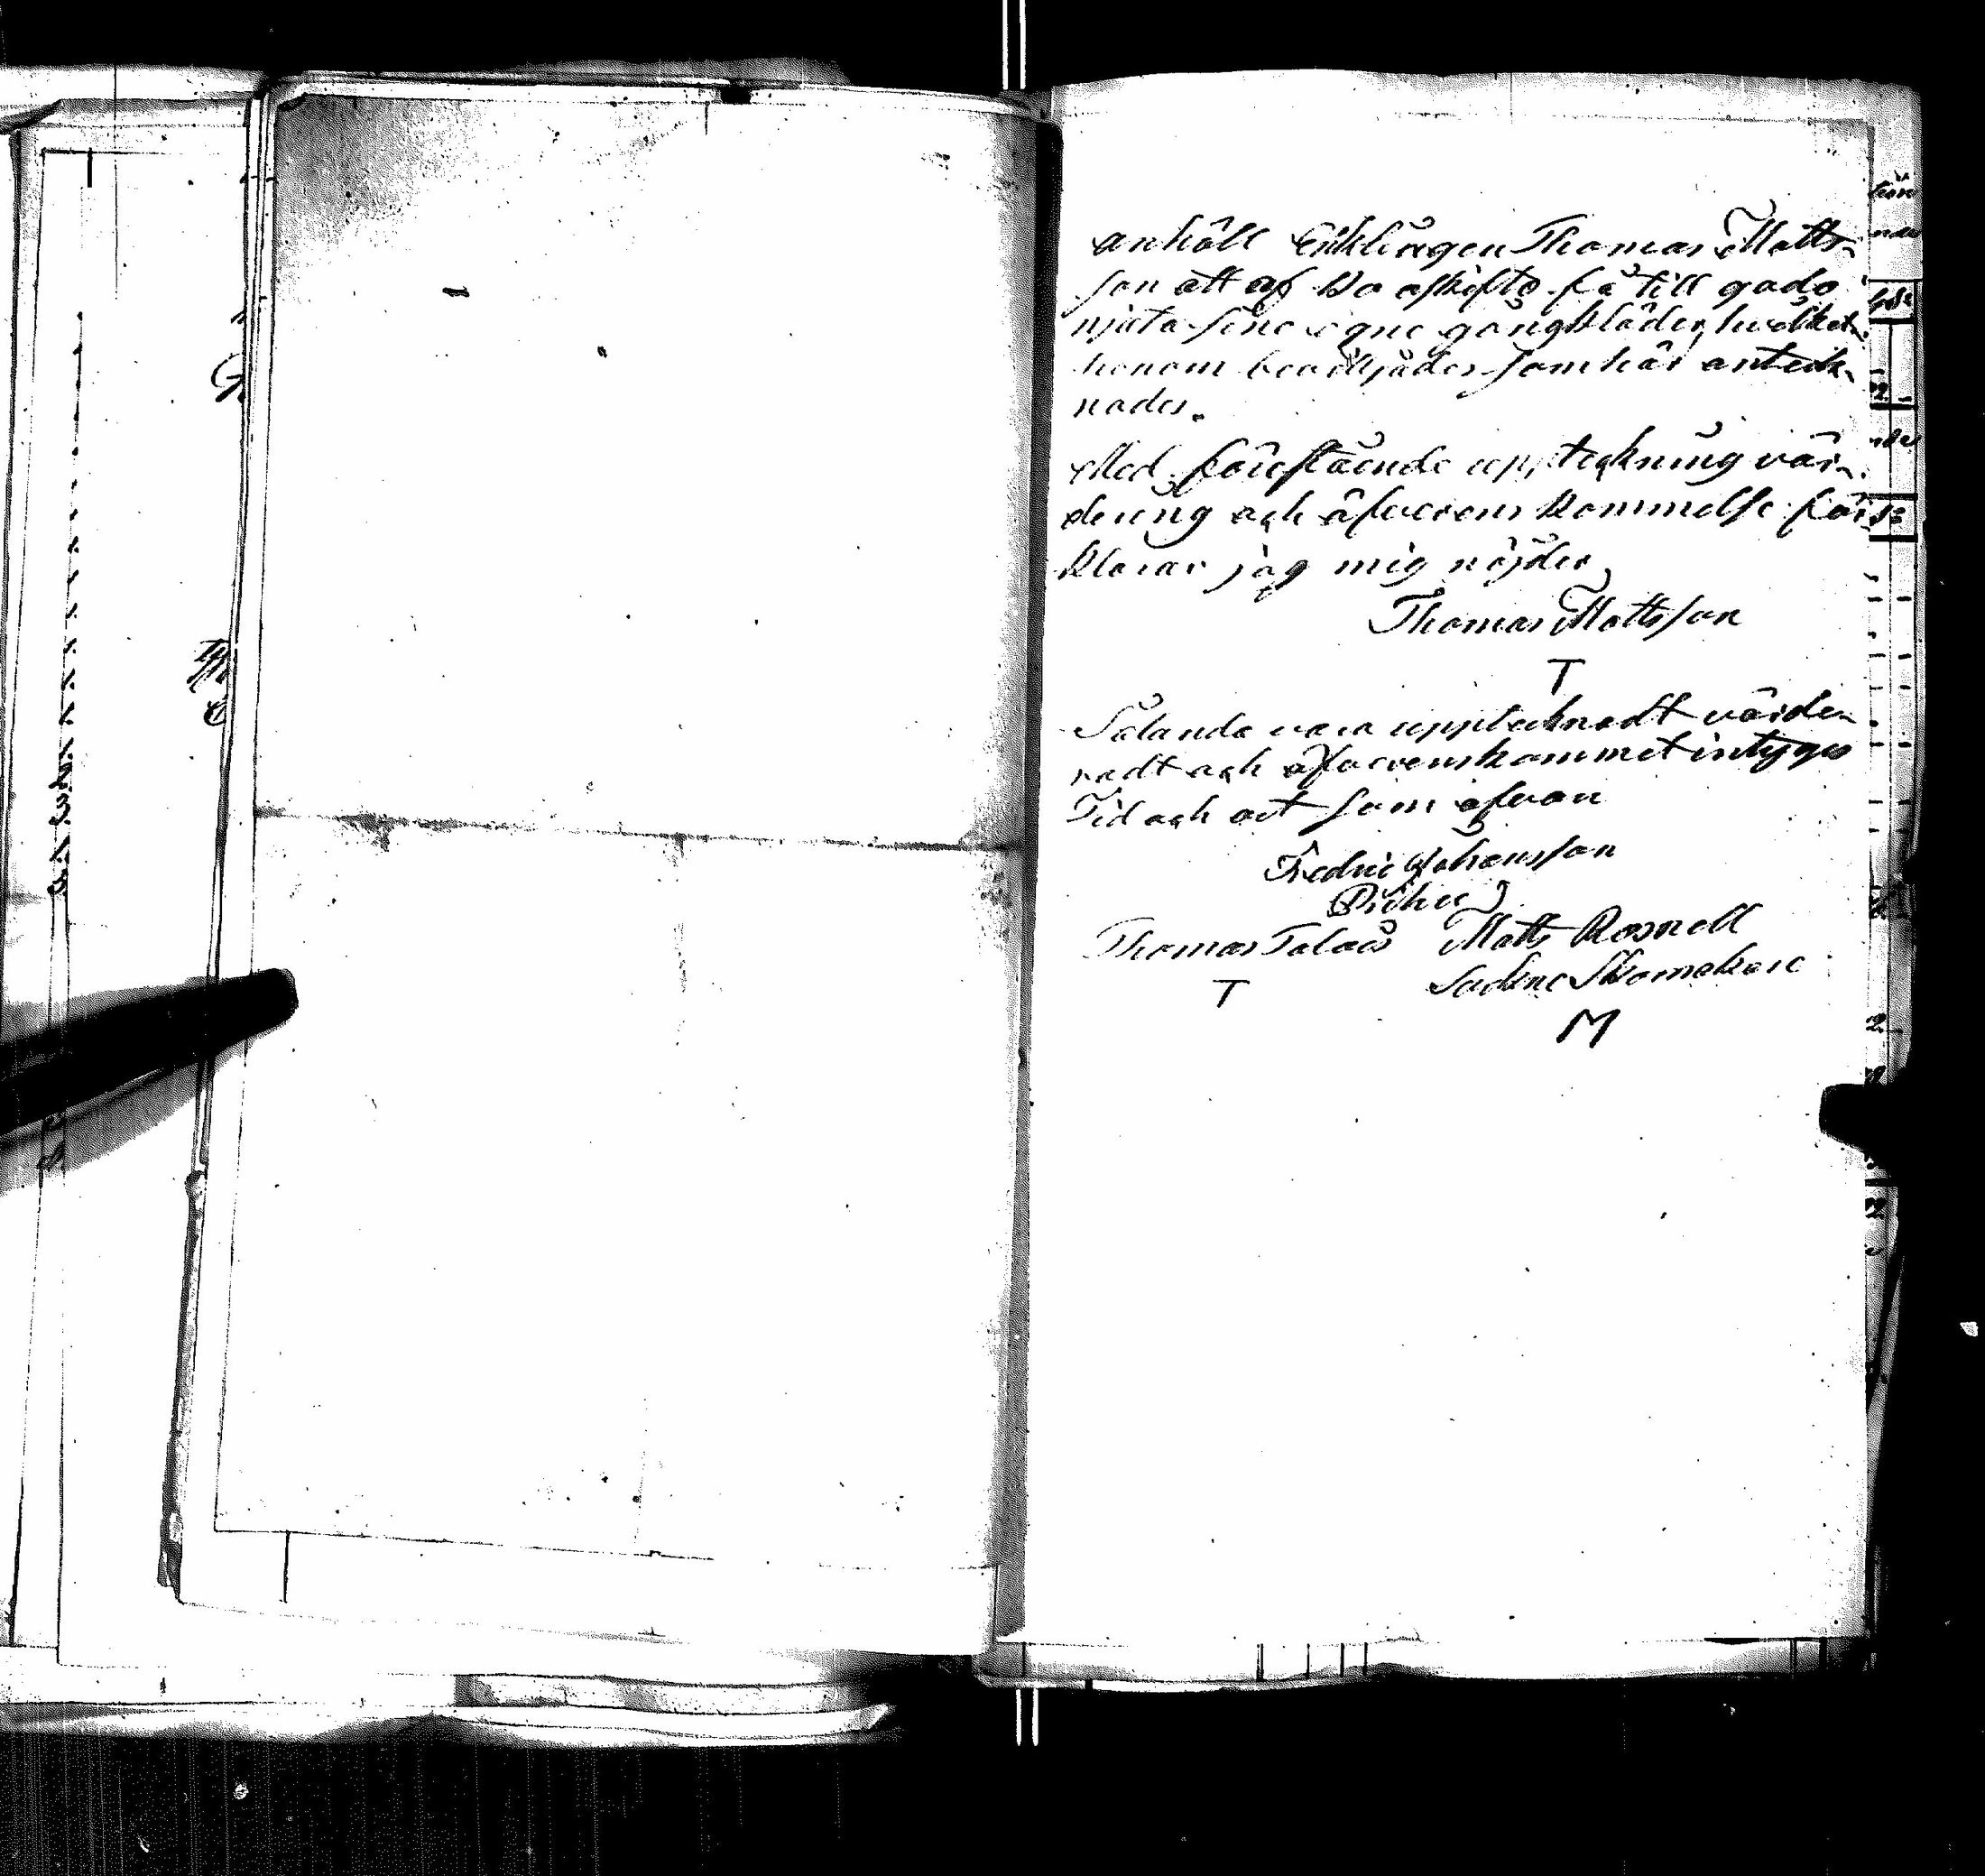 anhöll Enklingen Thomas Matts-
son att af bo oskifto få till godo
njuta sine egne gångkläder, hvilket
honom beviljades som här anteck-
nades.
Med förestående uppteckning vär-
dering och öfverens kommelse för
klarar jag mig nöjder,
Thomas Mattsson
T
Sålunda vara upptecknadt värde-
radt och öfverenskommet intyga
Tid och ort som ofvan
Fredric Johansson
Thomas Talaas Matts Rosnell
Sockne Skomakare
T
M